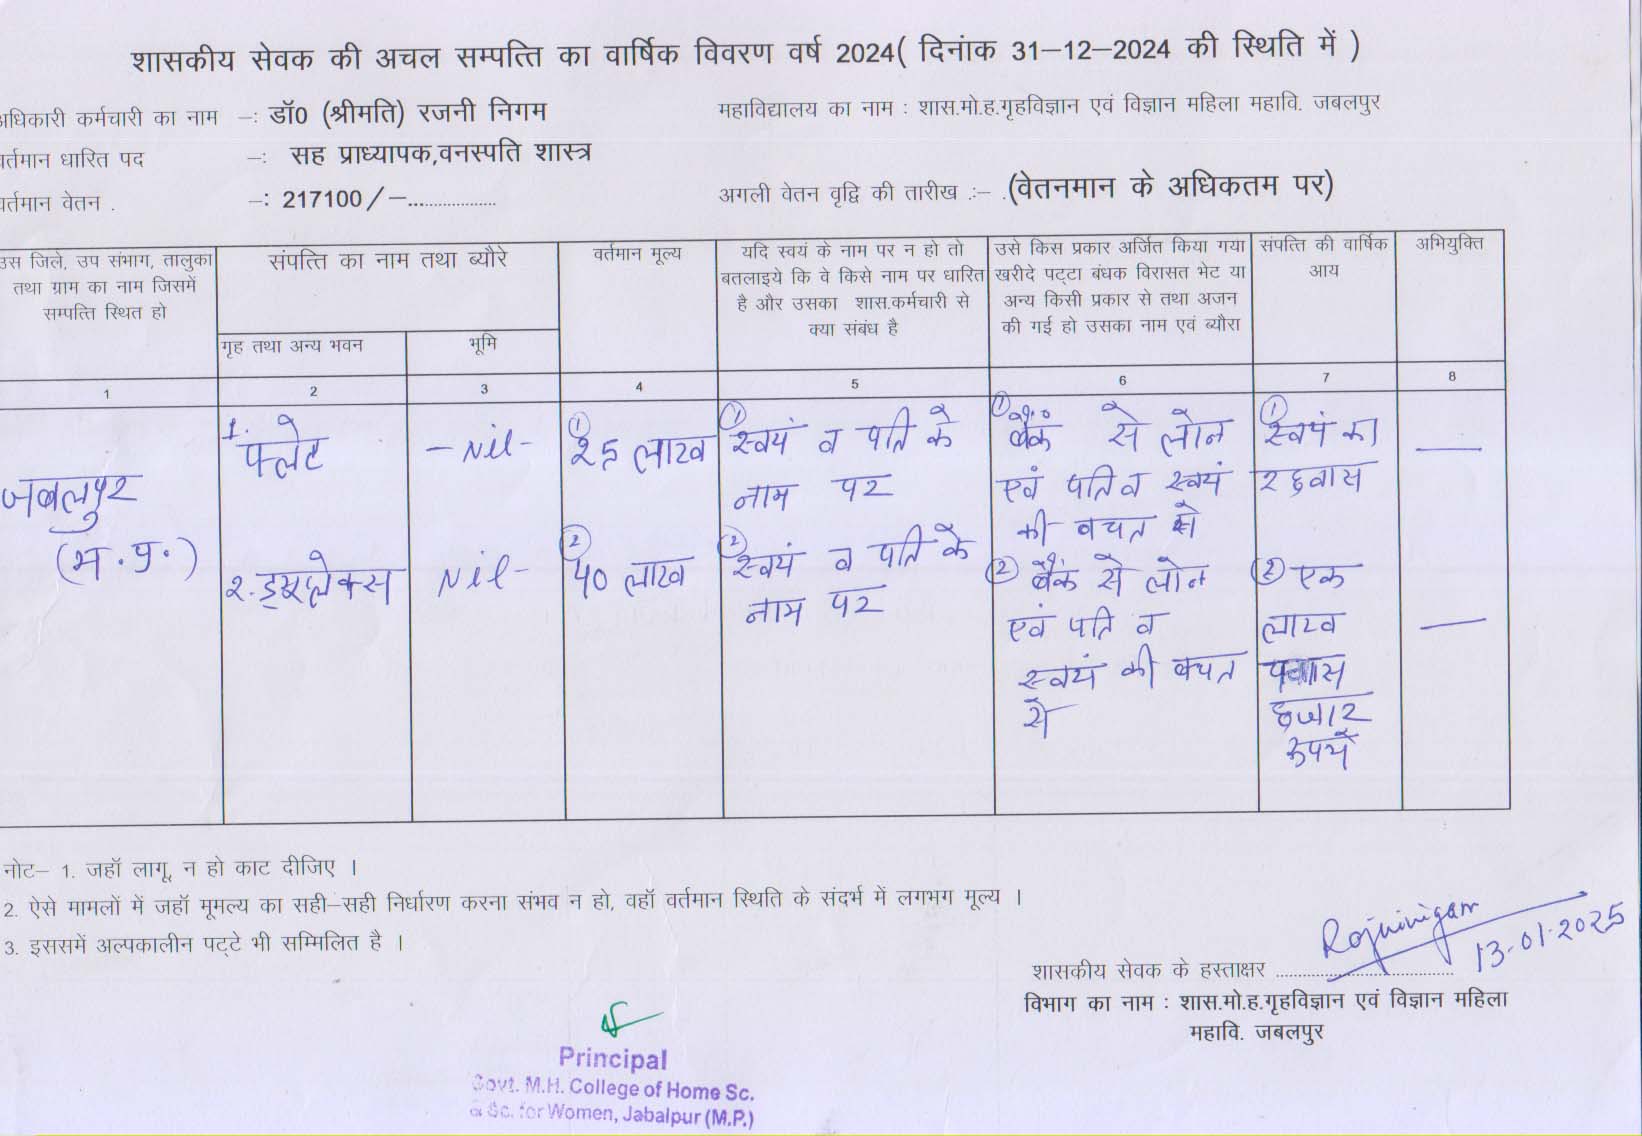 शासकीय सेवक की अचल सम्पत्ति का वार्षिक विवरण वर्ष 2024( दिनांक 31–12–2024 की स्थिति में )
अधिकारी कर्मचारी का नाम –: डॉ0 (श्रीमति) रजनी निगम महाविद्यालय का नाम : शास.मो.ह.गृहविज्ञान एवं विज्ञान महिला महावि. जबलपुर
वर्तमान धारित पद –: सह प्राध्यापक,वनस्पति शास्त्र
वर्तमान वेतन . –: 217100/–................... अगली वेतन वृद्वि की तारीख :– .(वेतनमान के अधिकतम पर)
उस जिले, उप संभाग, तालुका
तथा ग्राम का नाम जिसमें
सम्पत्ति स्थित हो
संपत्ति का नाम तथा ब्यौरे
गृह तथा अन्य भवन
भूमि
वर्तमान मूल्य
यदि स्वयं के नाम पर न हो तो
बतलाइये कि वे किसे नाम पर धारित
है और उसका शास.कर्मचारी से
क्या संबंध है
उसे किस प्रकार अर्जित किया गया
खरीदे पट्टा बंधक विरासत भेट या
अन्य किसी प्रकार से तथा अजन
की गई हो उसका नाम एवं ब्यौरा
संपत्ति की वार्षिक
आय
अभियुक्ति
1 2 3 4 5 6 7 8
जबलपुर
(म.प्र.)
1. फ्लेट
२. ड्यूप्लेक्स
– Nil –
Nil –
① 25 लाख
② 40 लाख
① स्वयं व पति के
नाम पर
② स्वयं व पति के
नाम पर
① बैंक से लोन
एवं पति व स्वयं
की बचत से
② बैंक से लोन
एवं पति व
स्वयं की बचत
से
① स्वयं का
रहवास
② एक
लाख
पचास
हजार
रुपये
—
—
नोट– 1. जहॉ लागू, न हो काट दीजिए ।
2. ऐसे मामलों में जहॉ मूमल्य का सही–सही निर्धारण करना संभव न हो, वहॉ वर्तमान स्थिति के संदर्भ में लगभग मूल्य ।
3. इससमें अल्पकालीन पट्टे भी सम्मिलित है ।
Rajninigam
13-01-2025
शासकीय सेवक के हस्ताक्षर ........................................
विभाग का नाम : शास.मो.ह.गृहविज्ञान एवं विज्ञान महिला
महावि. जबलपुर
Principal
Govt. M.H. College of Home Sc.
& Sc. for Women, Jabalpur (M.P.)